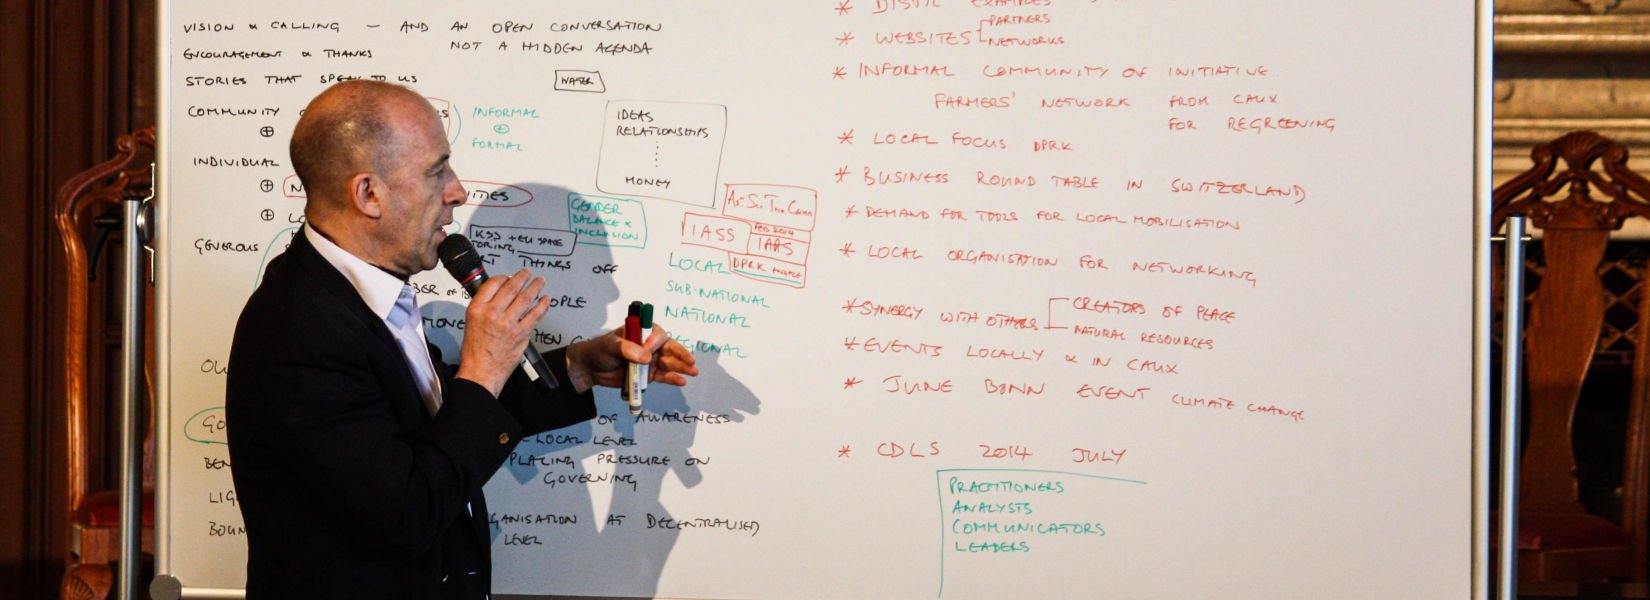 VISION & CALLING — AND AN OPEN CONVERSATION
NOT A HIDDEN AGENDA
ENCOURAGEMENT & THANKS
STORIES THAT SPEAK TO US
WATER
COMMUNITY
⊕
INDIVIDUAL
⊕
⊕
GENEROUS
INFORMAL
⊕
FORMAL
IDEAS
RELATIONSHIPS
MONEY
GENDER
BALANCE &
INCLUSION
KSS + EU SPACE
THINGS OFF
IASS
FEB 2014
IAAS
DPRK
LOCAL
SUB-NATIONAL
NATIONAL
REGIONAL
OF AWARENESS
LOCAL LEVEL
PLACING PRESSURE ON
GOVERNING
AT DECENTRALISED
LEVEL
* WEBSITES
PARTNERS
NETWORKS
* INFORMAL COMMUNITY OF INITIATIVE.
FARMERS' NETWORK FROM CAUX
FOR REGREENING
* LOCAL FOCUS DPRK
* BUSINESS ROUND TABLE IN SWITZERLAND)
* DEMAND FOR TOOLS FOR LOCAL MOBILISATION
* LOCAL ORGANISATION FOR NETWORKING
* SYNERGY WITH OTHERS
CREATORS OF PEACE
NATURAL RESOURCES
* EVENTS LOCALLY & IN CAUX
* JUNE BONN EVENT CLIMATE CHANGE
* CDLS 2014 JULY
PRACTITIONERS
ANALYSTS
COMMUNICATORS
LEADERS